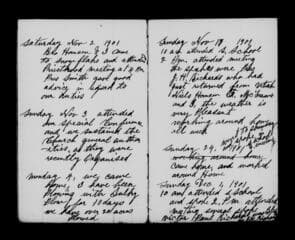 Saturday Nov 2 1901
Bro Hansen & I came
to Snow flake and attended
Priesthood meeting at 2 P.m.
Pres Smith gave good
advice in regard to
our duties
Sunday Nov 3 attended
a special Conference
and we sustained the
general author
ities, as they were
recently organised
Monday 4, we came
home, I have been
plowing with
for 10 days
we have over 20 acres
plowed
Sunday Nov 17 1901
10 am attended S. School
2 P.m. attended meeting
the speakers were
J. H. Richards who had
just returned from Utah
and I, the weather is
very pleasant
working around home
all week
Sunday 24, 1901,
working around home,
came home, and worked
around Home
Sunday Dec 1, 1901
10 am attended S. School
and 2 P.m. attended
meeting